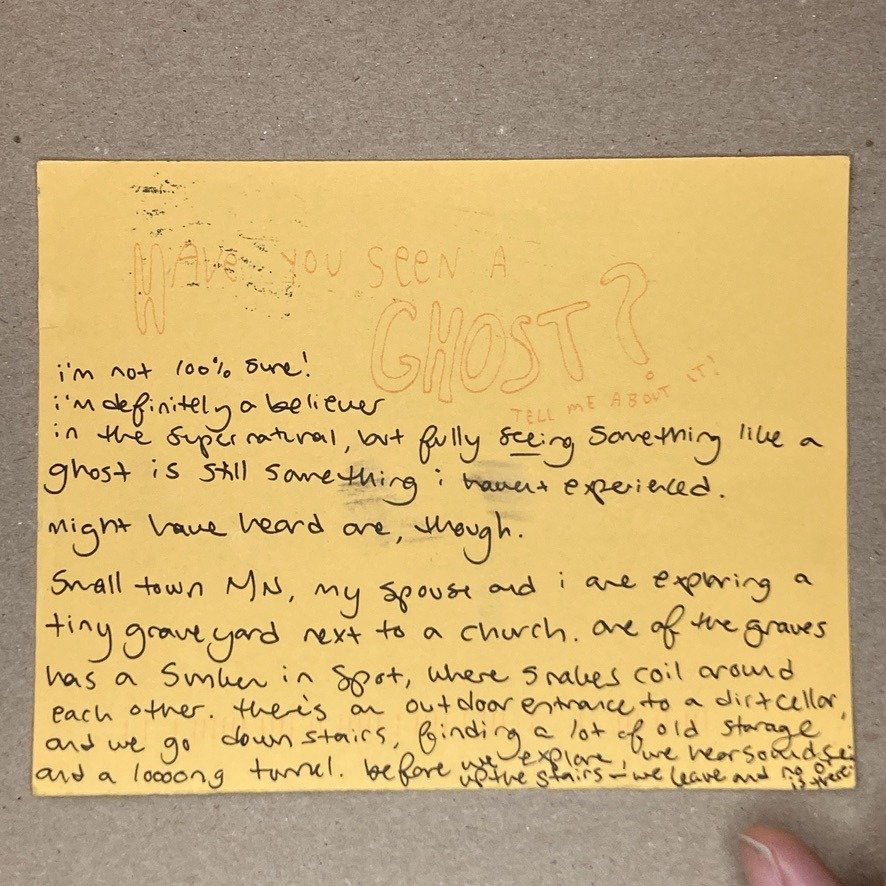 HAVE YOU SEEN A
GHOST?
TELL ME ABOUT IT!
i'm not 100% sure!
i'm definitely a believer
in the supernatural, but fully seeing something like a
ghost is still something i havent experienced.
might have heard one, though.
Small town MN, my spouse and i are exploring a
tiny graveyard next to a church. one of the graves
has a sunken in spot, where snakes coil around
each other. there's an outdoor entrance to a dirt cellar,
and we go down stairs, finding a lot of old storage
and a loooong tunnel. before we explore, we hear
up the stairs — we leave and no one
is there.